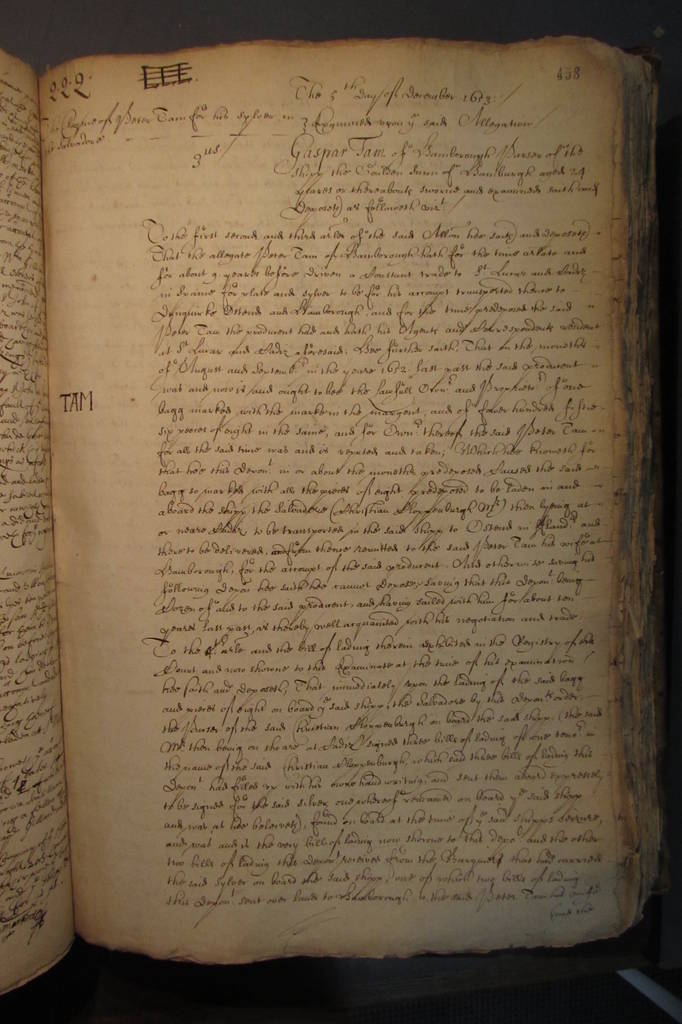 222.
458
The 5th Day of December 1653:/
The Clayme of Peter Tam for his sylver in
the Salvadore
3 Examined upon ye said Allegation
3us/
Gaspar Tam of Hamborough Purser of the
shipp the Goulden Sunn of Hamburgh aged 24
yeares or thereabouts sworne and examined saith and
Deposeth as followeth vizt./
To the first second and third arles of the said Allon hee saith and deposeth
That the allegate Peter Tam of Hamborough hath for the time arlate and
for about 9 yeares before driven a Constant trade to St. Lucar and Cadiz
in Spaine for plate and sylver to be for his accompt transported thence to
Dunquirke Ostend and Hamborough, and for the time predeposed the said
Peter Tam the producent had and hath his Agents and Correspondents resident
at St Lucar and Cadiz aforesaid. Hee further saith, That in the moneths
of August and Septemb in the yeare 1652 last past the said producent
was and now is and ought to bee the lawfull Owner and Proprietor of one
bagg marked with the marke in the margent, and of fower hundred
six peeces of eight in the same, and for Owner thereof the said Peter Tam
TAM
for all the said time was and is reputed and taken; Which hee knoweth for
that hee this Depont in or about the moneths predeposed, Caused the said
bagg so marked with all the peeces of eight predeposed to be laden in and
aboard the shipp the Salvadore (Christian Cloppenburgh Mr) then lyeing at
or neere Cadiz to be transported in the said shipp to Ostend in Flandrs and
there to be delivered, and from thence remitted to the said Peter Tam his wife at
Hamborough, for the accompt of the said producent. And otherwise saving his
following Depon hee saith hee cannot Depose, saving that this Depont being
Cozen of and to the said producent, and having sailed with him for about ten
yeares last past, is thereby well acquainted with his negotiation and trade
To the arle and the bill of lading therein exhibited in the Registry of this
Court and now showne to this Examinate at the time of his examination
hee saith and deposeth, That immediately upon the lading of the said bagg
and peeces of eight on board ye said shipp the Salvadore by this Deponts order
the Purser of the said Christian Cloppenburgh on board the said shipp (the said
Mr then being on shoare at Cadiz) signed three bills of lading of one tenor in
the name of the said Christian Cloppenburgh, which said three bills of lading this
Depont had filled up with his owne hand writing, and sent them aboard expressely
to be signed for the said silver, one whereof remained on board ye said shipp
and was as hee beleeveth, found on board at the time of ye said shipps seizure,
and was and is the very bill of lading now showne to this depo. and the other
two bills of lading this Depont received from the that had carried
the said sylver on board the said shipp, one of which two bills of lading
this Depont sent over land to Hamborough to the said Peter Tam